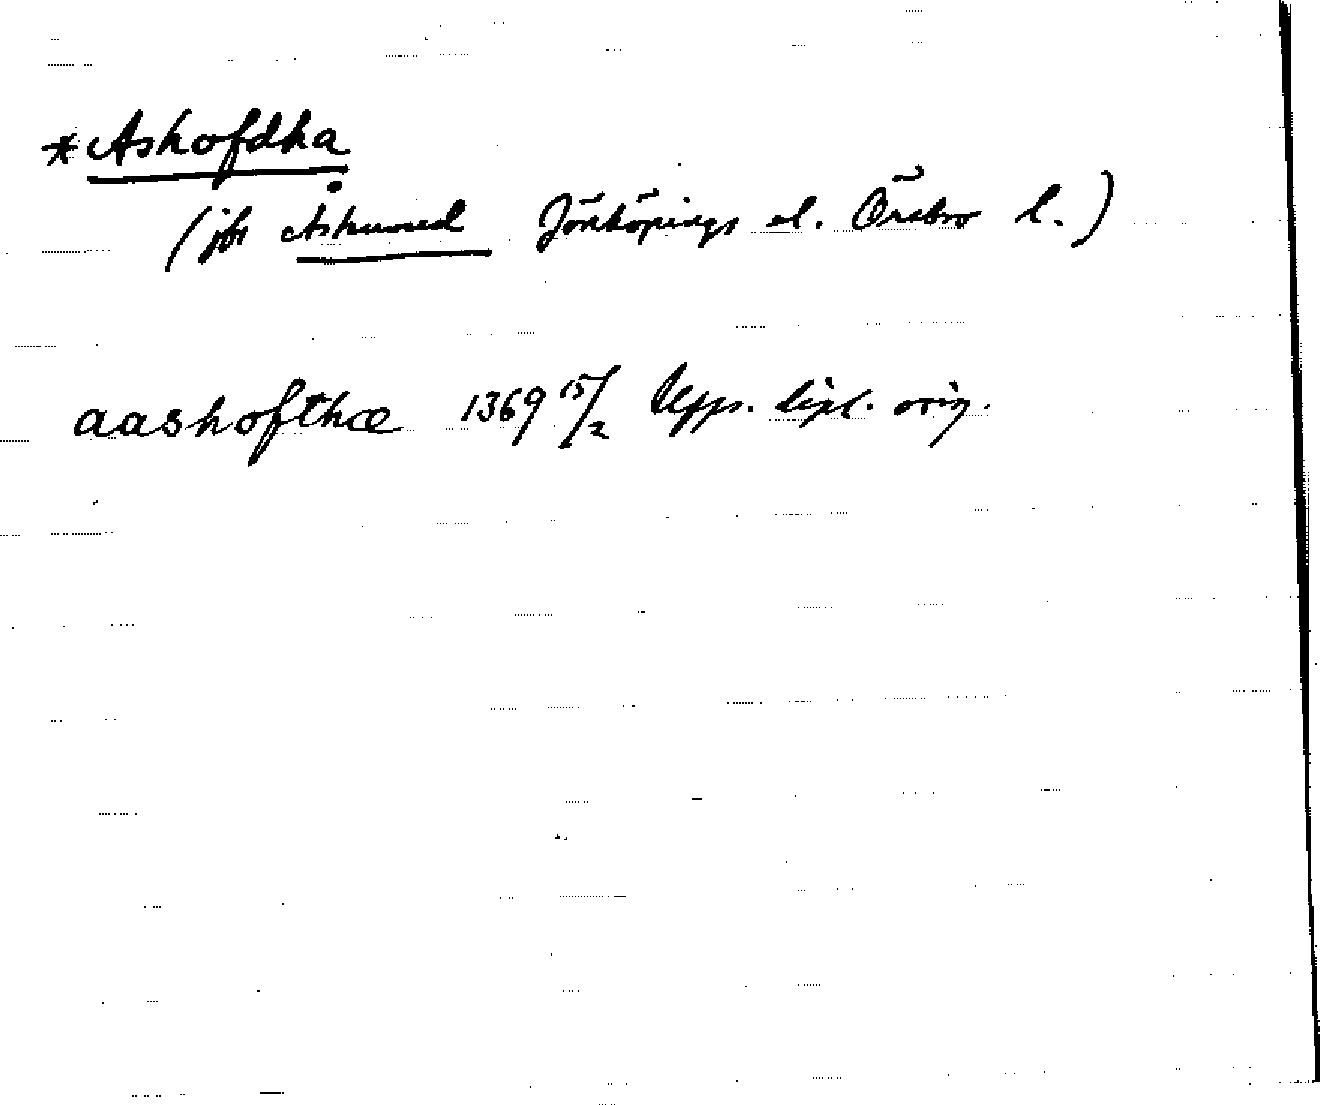 *Ashofdha
(jfr Åshuvud Jönköpings el. Örebro l.)
aashofthæ 1369 15/2 Upps. dipl. orig.